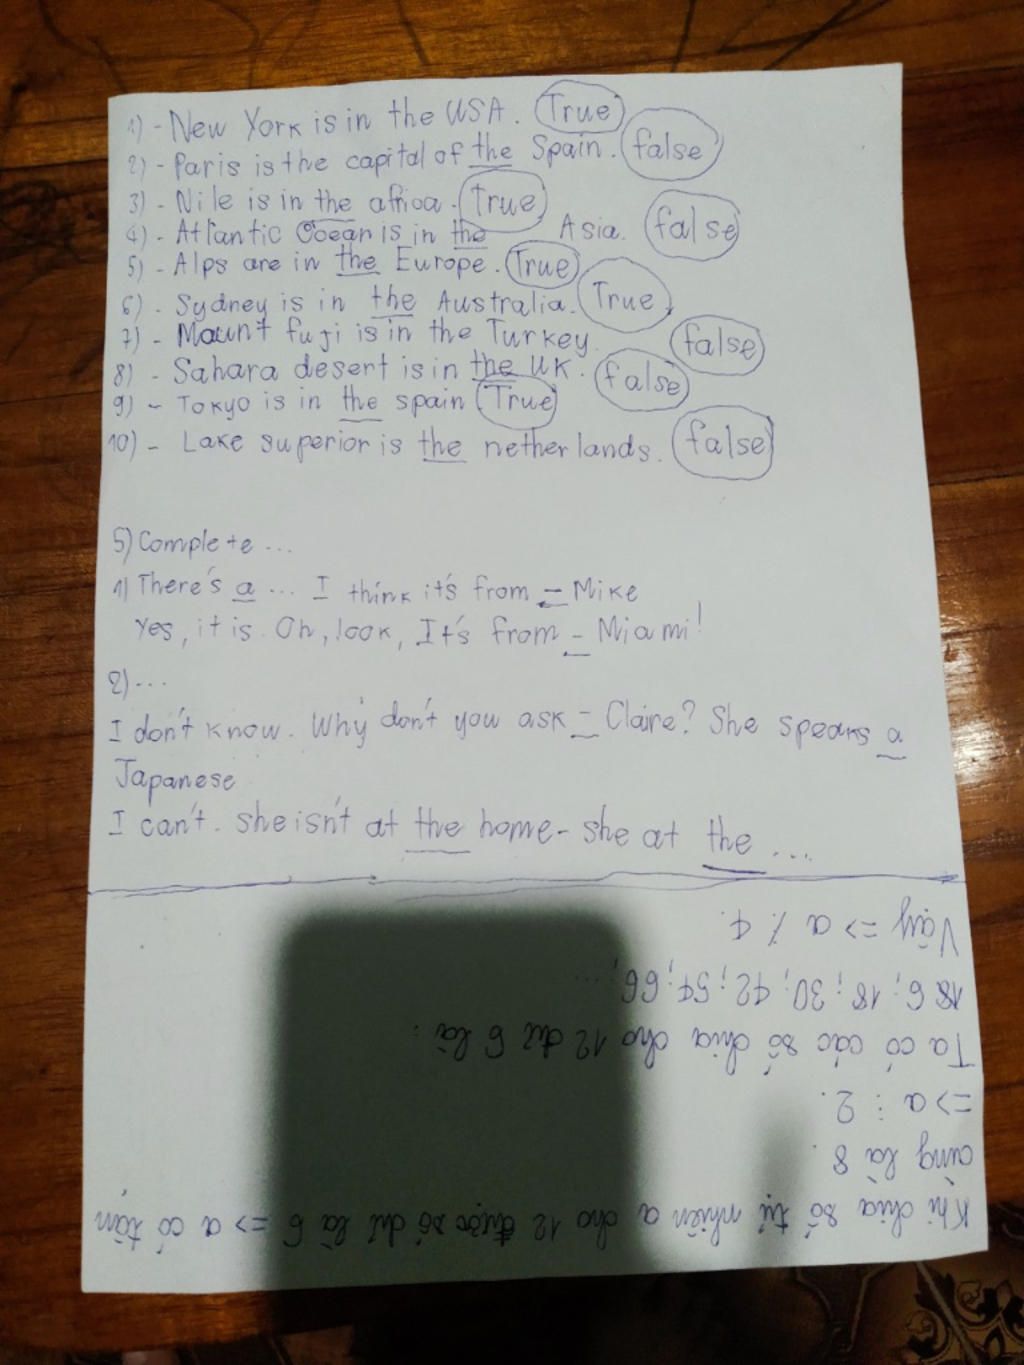 1) - New York is in the USA. True
2) - Paris is the capital of the Spain. false
3) - Nile is in the africa. True
4) - Atlantic Ocean is in the Asia. false
5) - Alps are in the Europe. True
6) - Sydney is in the Australia. True
7) - Mount fuji is in the Turkey. false
8) - Sahara desert is in the UK. false
9) - Tokyo is in the spain True
10) - Lake superior is the netherlands. false
5) Complete ...
1) There's a ... I think it's from - Mike
Yes, it is. Oh, look, It's from - Miami!
2) ...
I don't know. Why don't you ask - Claire? She speaks a
Japanese
I can't. she isn't at the home - she at the ...
Khi chia số tự nhiên a cho 12 được số dư là 6 => a có tận
cùng là 8.
=> a ⋮ 2.
Ta có các số chia cho 12 dư 6 là:
6; 18; 30; 42; 54; 66; ...
Vậy => a ⋮̸ 4.